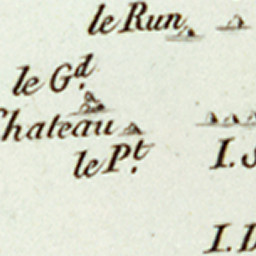 le Run
le Gd.
Chateau
le Pt.
I. S
I. D